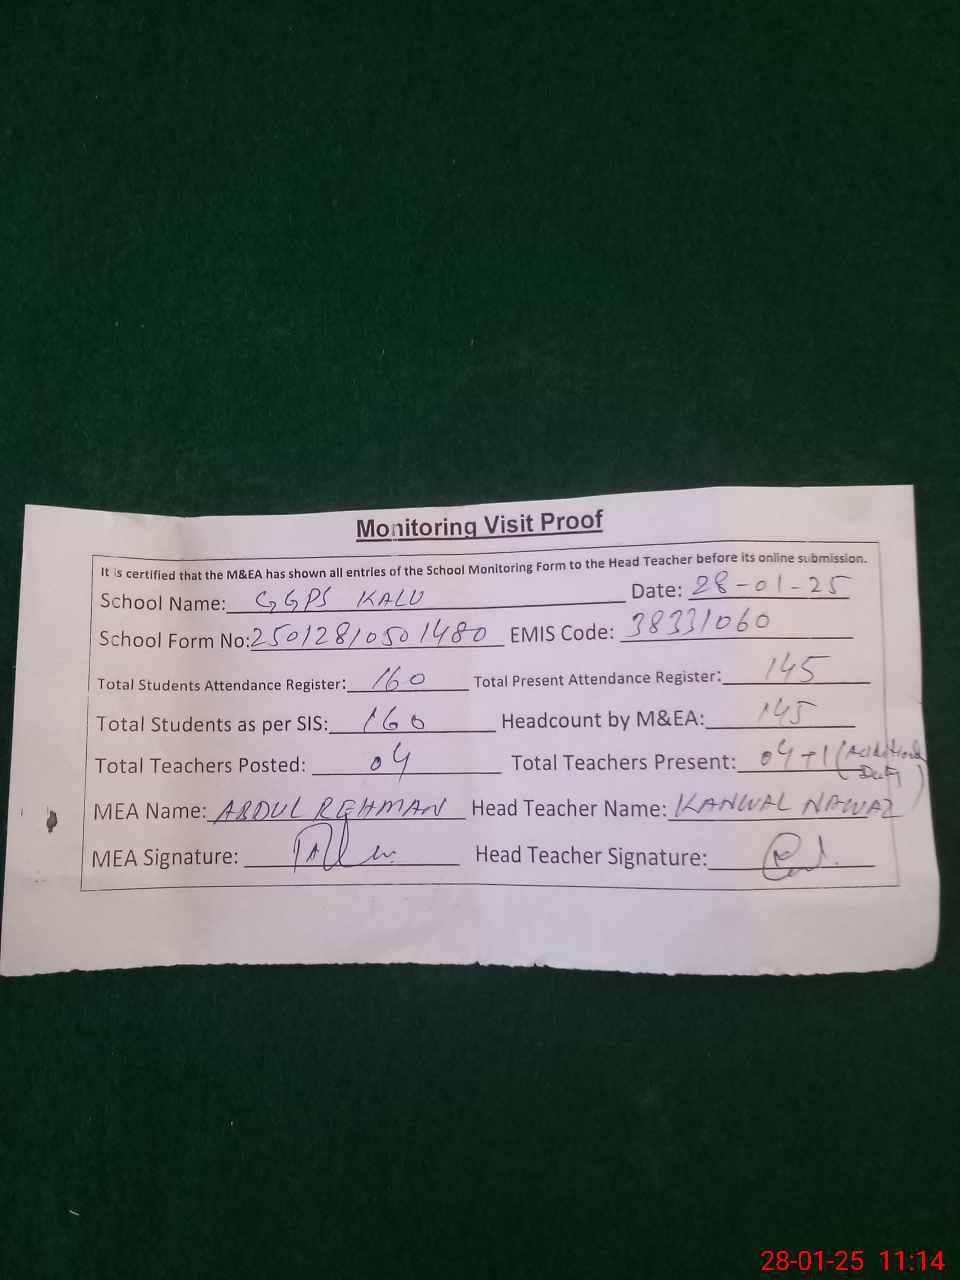 Monitoring Visit Proof
It is certified that the M&EA has shown all entries of the School Monitoring Form to the Head Teacher before its online submission.
School Name: GGPS KALU Date: 28-01-25
School Form No: 25012810501480 EMIS Code: 38331060
Total Students Attendance Register: 160 Total Present Attendance Register: 145
Total Students as per SIS: 160 Headcount by M&EA: 145
Total Teachers Posted: 04 Total Teachers Present: 04+1 (Additional Duty)
MEA Name: ABDUL REHMAN Head Teacher Name: KANWAL NAWAZ
MEA Signature: Head Teacher Signature:
28-01-25 11:14